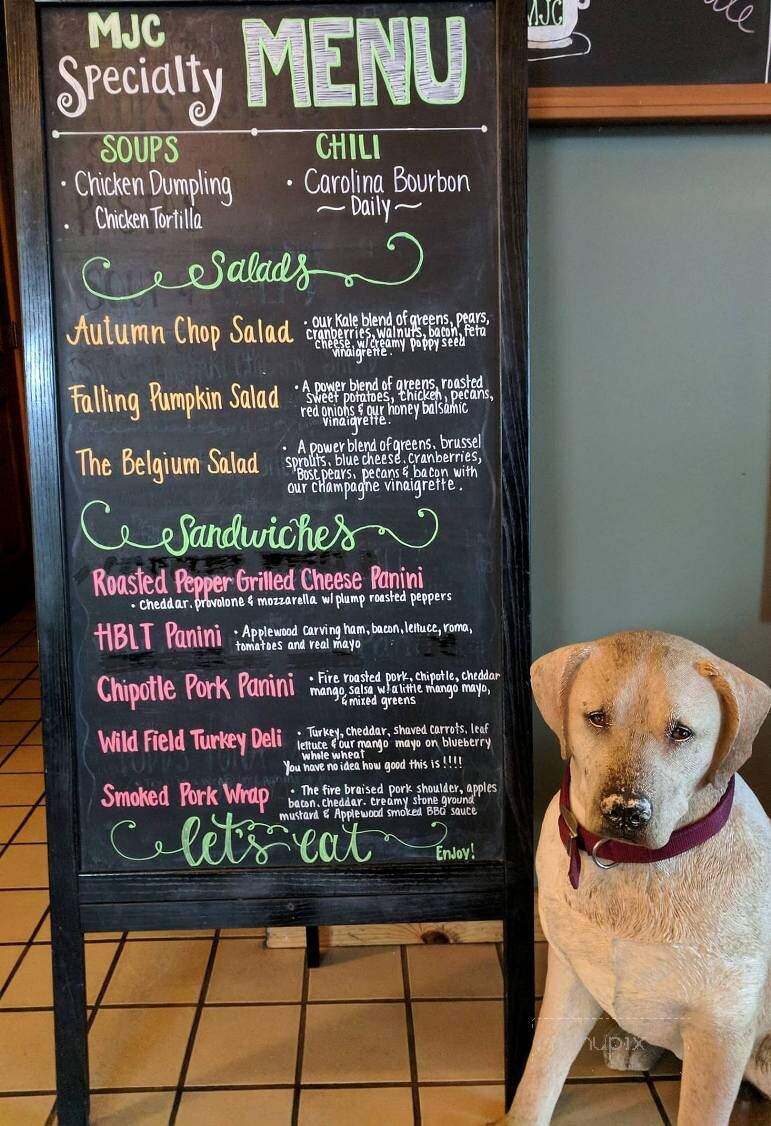 MJC
Specialty
MENU
SOUPS
• Chicken Dumpling
• Chicken Tortilla
CHILI
• Carolina Bourbon
~ Daily ~
Salads
Autumn Chop Salad
• our Kale blend of greens, pears,
cranberries, walnuts, bacon, feta
cheese, w/creamy poppy seed
vinaigrette.
Falling Pumpkin Salad
• A power blend of greens, roasted
sweet potatoes, chicken, pecans,
red onions & our honey balsamic
vinaigrette.
The Belgium Salad
• A power blend of greens, brussel
sprouts, blue cheese, cranberries,
Bosc pears, pecans & bacon with
our champagne vinaigrette.
Sandwiches
Roasted Pepper Grilled Cheese Panini
• cheddar, provolone & mozzarella w/ plump roasted peppers
HBLT Panini
• Applewood carving ham, bacon, lettuce, roma,
tomatoes and real mayo
Chipotle Pork Panini
• Fire roasted pork, chipotle, cheddar
mango salsa w/ a little mango mayo,
& mixed greens
Wild Field Turkey Deli
• Turkey, cheddar, shaved carrots, leaf
lettuce & our mango mayo on blueberry
whole wheat
You have no idea how good this is !!!!
Smoked Pork Wrap
• The fire braised pork shoulder, apples
bacon, cheddar, creamy stone ground
mustard & Applewood smoked BBQ sauce
let's eat
Enjoy!
MJC